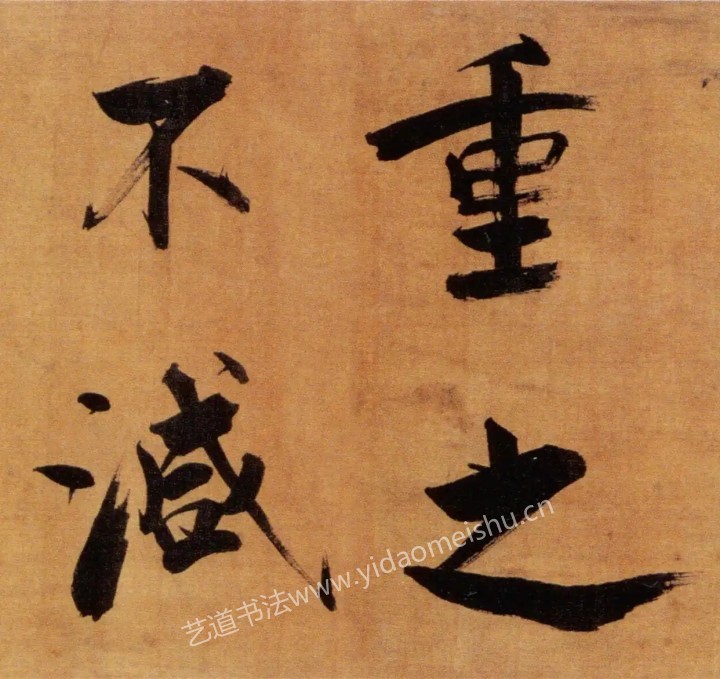 重之
不減
艺道书法www.yidaomeishu.cn